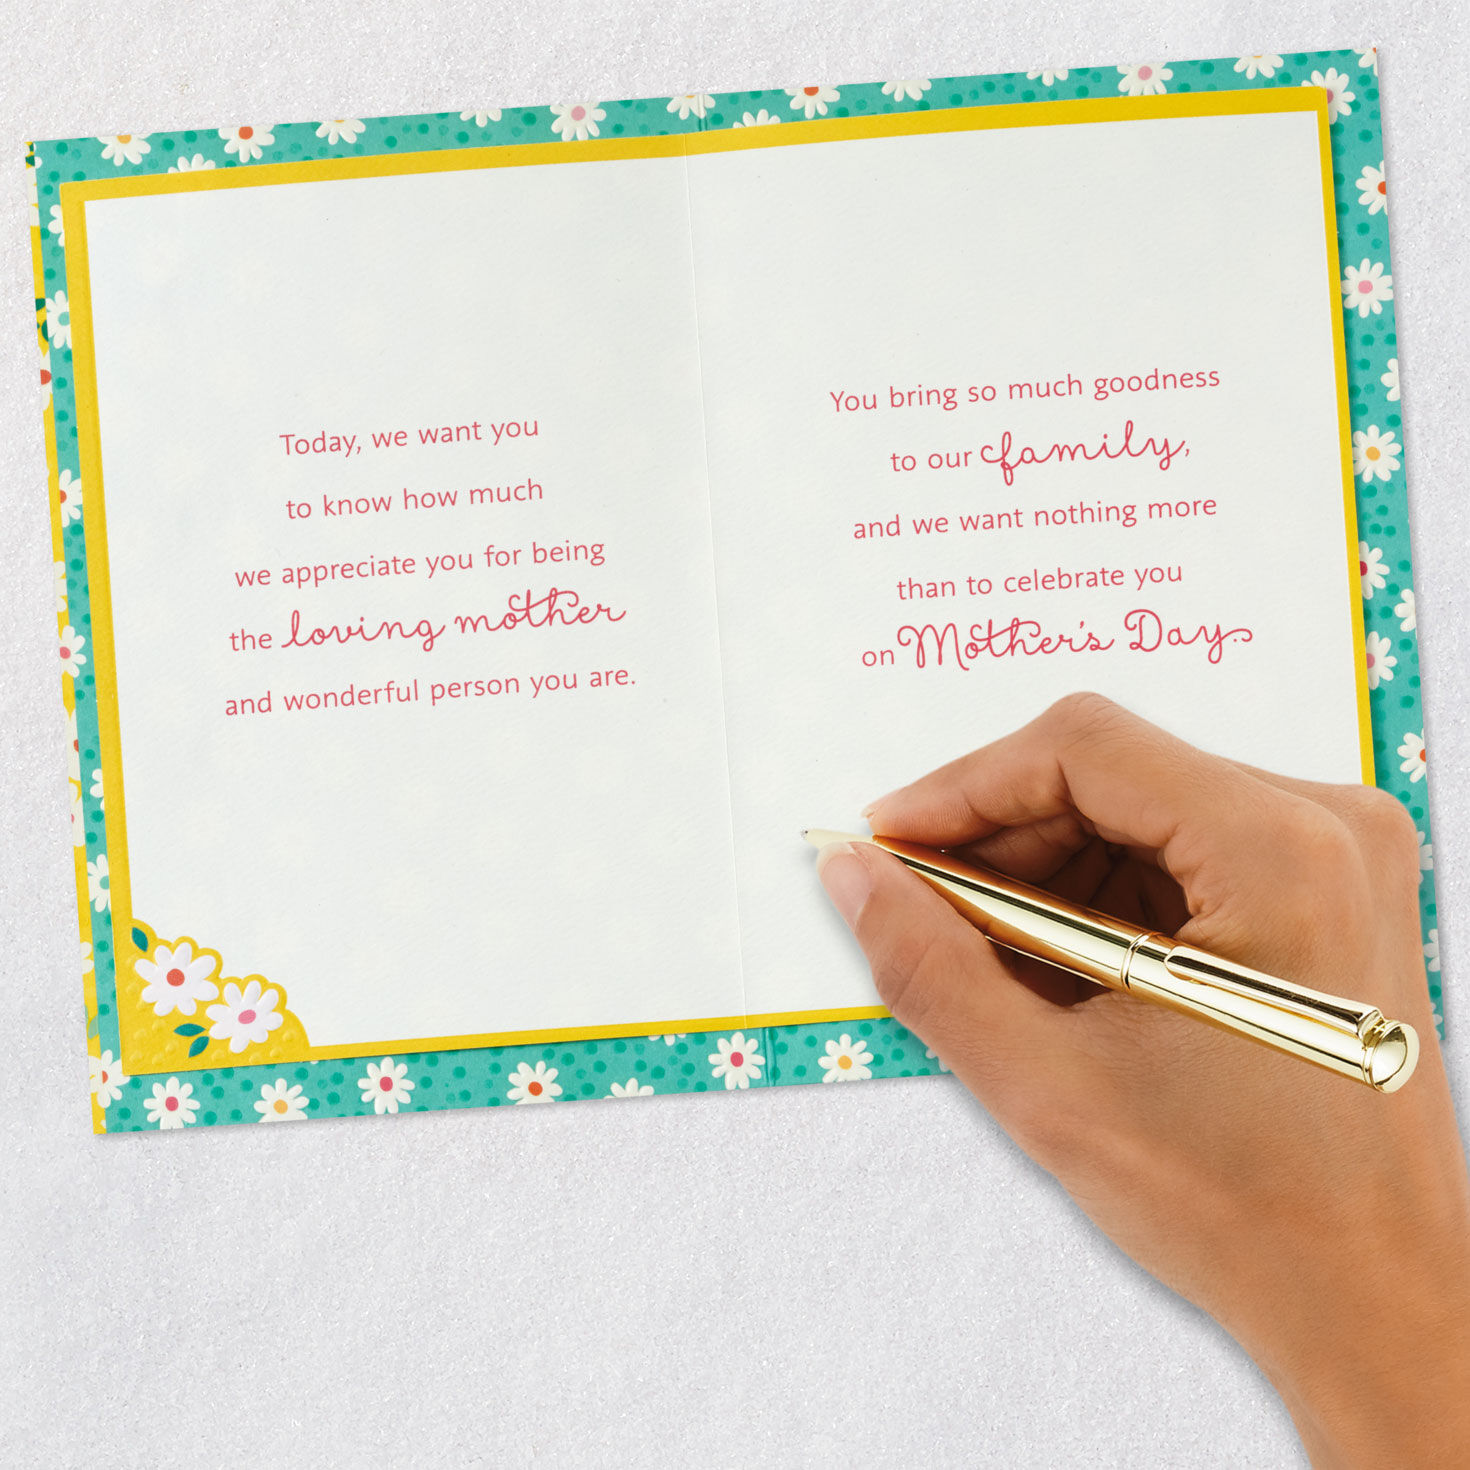 Today, we want you
to know how much
we appreciate you for being
the loving mother
and wonderful person you are.
You bring so much goodness
to our family,
and we want nothing more
than to celebrate you
on Mother's Day.